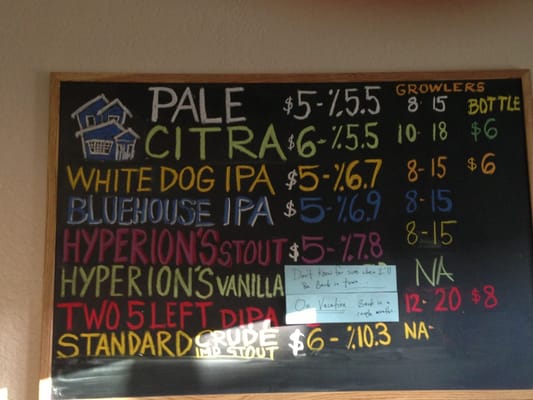 GROWLERS
PALE $5-%5.5 8 15 BOTTLE
CITRA $6-%5.5 10-18 $6
WHITE DOG IPA $5-%6.7 8-15 $6
BLUEHOUSE IPA $5-%6.9 8-15
HYPERION'S STOUT $5-%7.8 8-15
HYPERION'S VANILLA NA
Don't know for sure when
Be Back in town
TWO 5 LEFT DIPA 12-20 $8
On Vacation Back in a
couple months
STANDARD CRUDE $6-%10.3 NA-
IMP STOUT